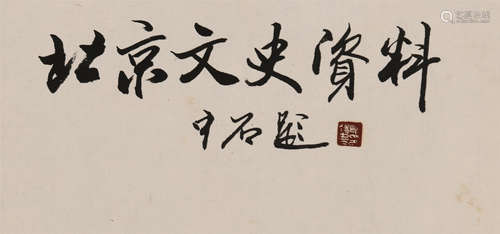 北京文史資料
中石题